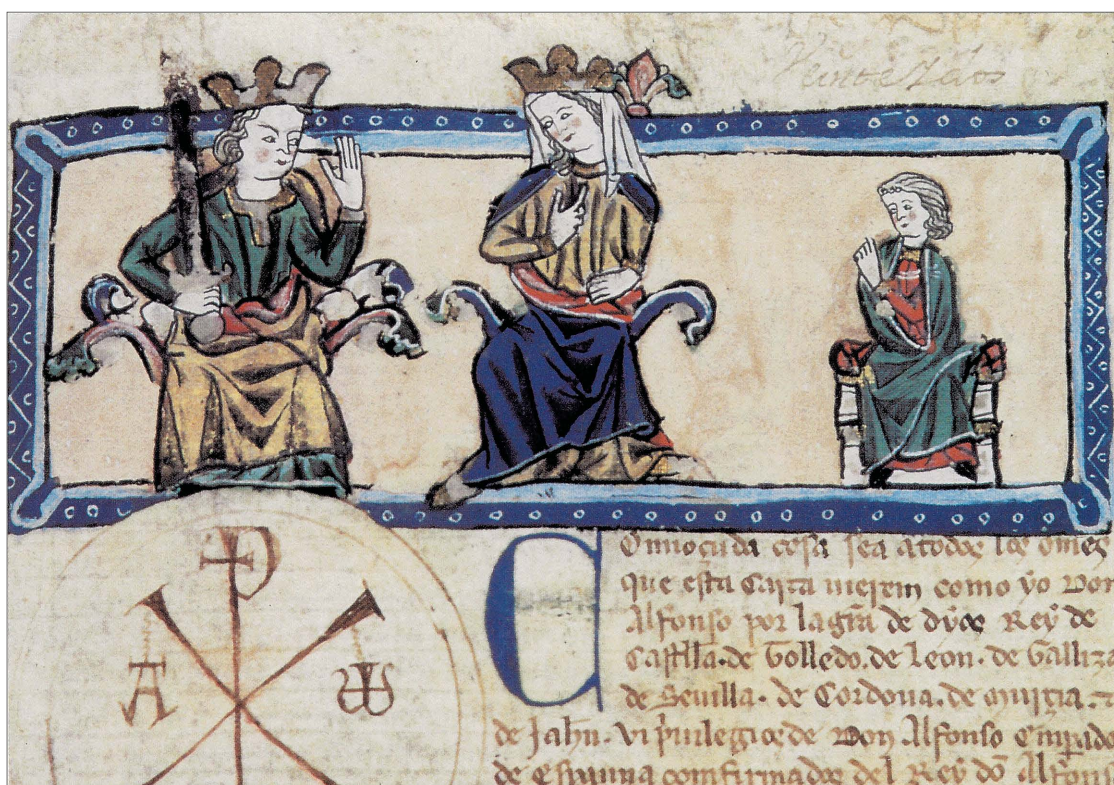 Conoçuda cosa sea a todos los omes
que esta Carta uieren como yo Don
Alfonso por la gra de dyos Rey de
Castilla. de Tolledo. de Leon. de Galliza
de Seuilla. de Cordoua. de Murçia.
de Jahn. vi priuilegios de Don Alfonso Emperado
de Espanna comfirmados del Rey do Alfonso
A ω